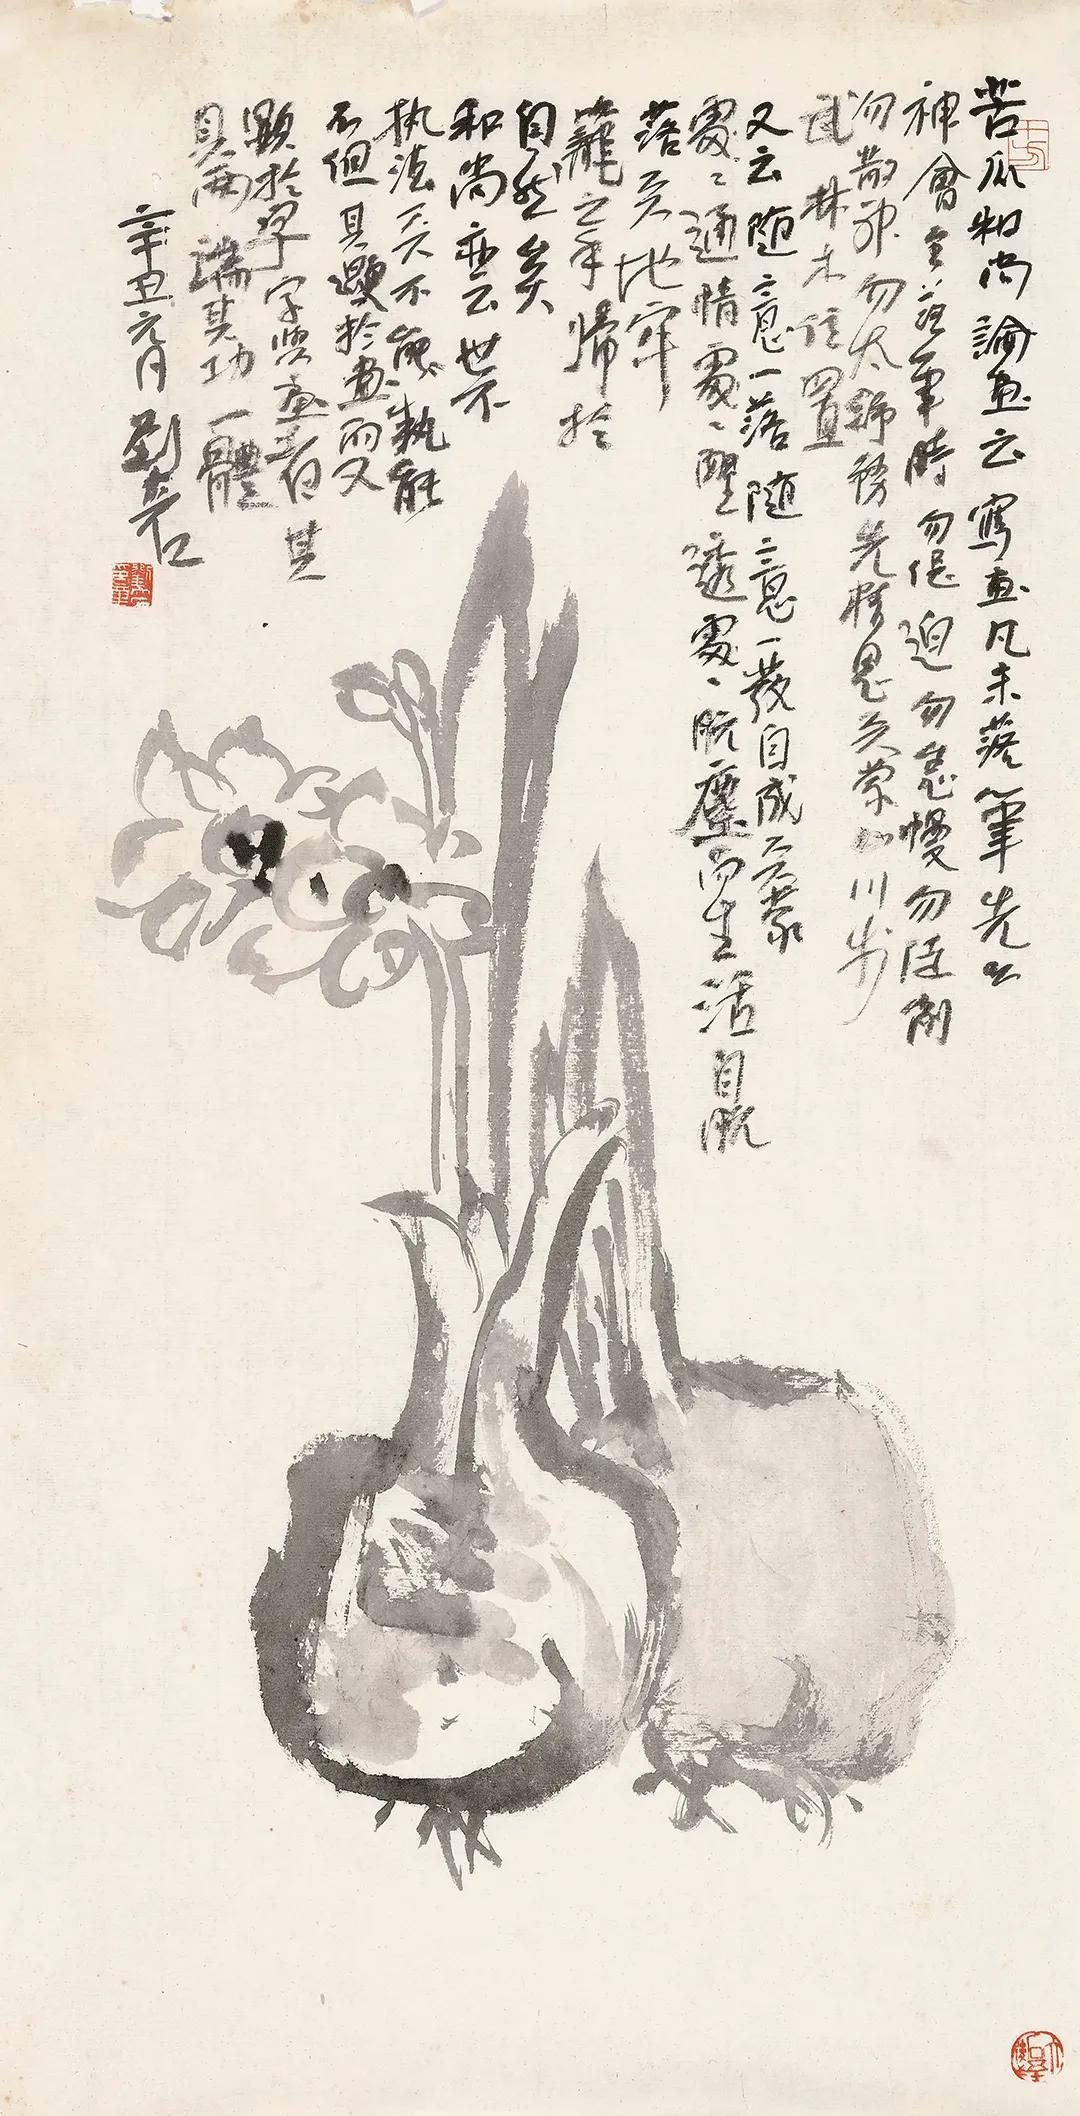 苦瓜和尚論畫云寫畫凡未落筆先以
神會至落筆時勿促迫勿怠慢勿陡削
勿散神勿太舒務先精思天蒙山川步
武林木位置
又云随意一落随意一發自成天蒙
處〻通情處〻醒透處〻脱塵而生活自脱
落天地牢
籠之手歸於
自然矣
和尚亦云世不
执法天不能執能
不但其顯於畫而又
顯於字字與畫者其
具兩端其功一體
辛丑元月劉